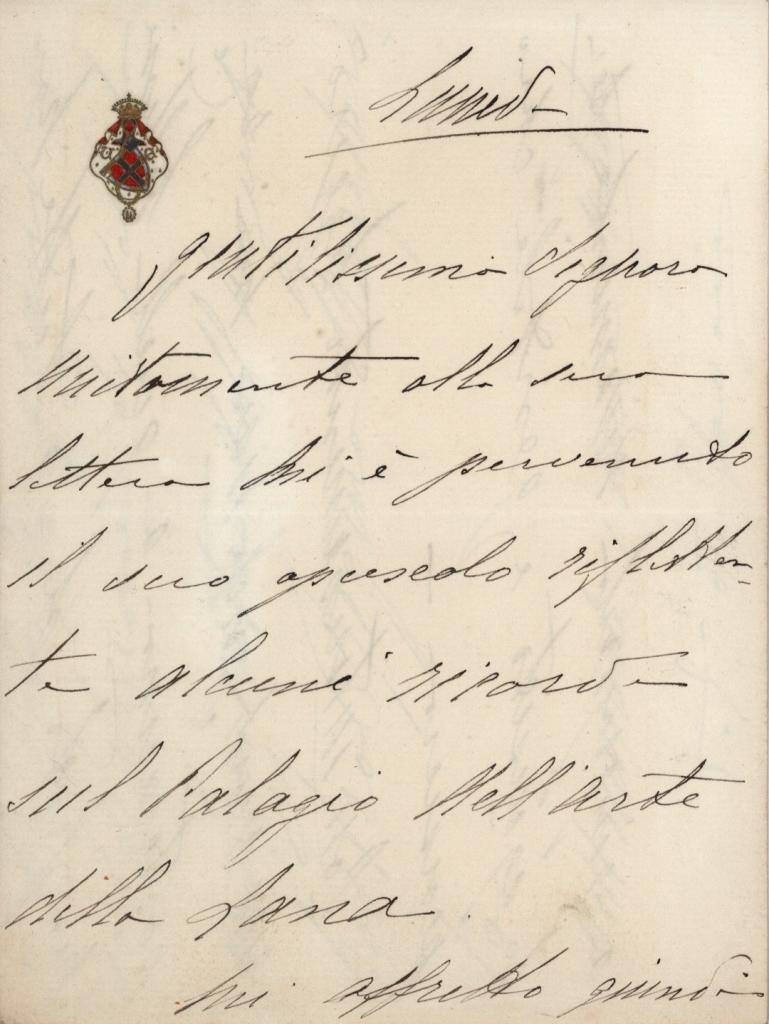 Lunedì
gentilissima Signora
unitamente alla sua
lettera mi è pervenuto
il suo opuscolo rifletten-
te alcuni ricordi
sul Palagio dell'arte
della Lana.
mi affretto quindi